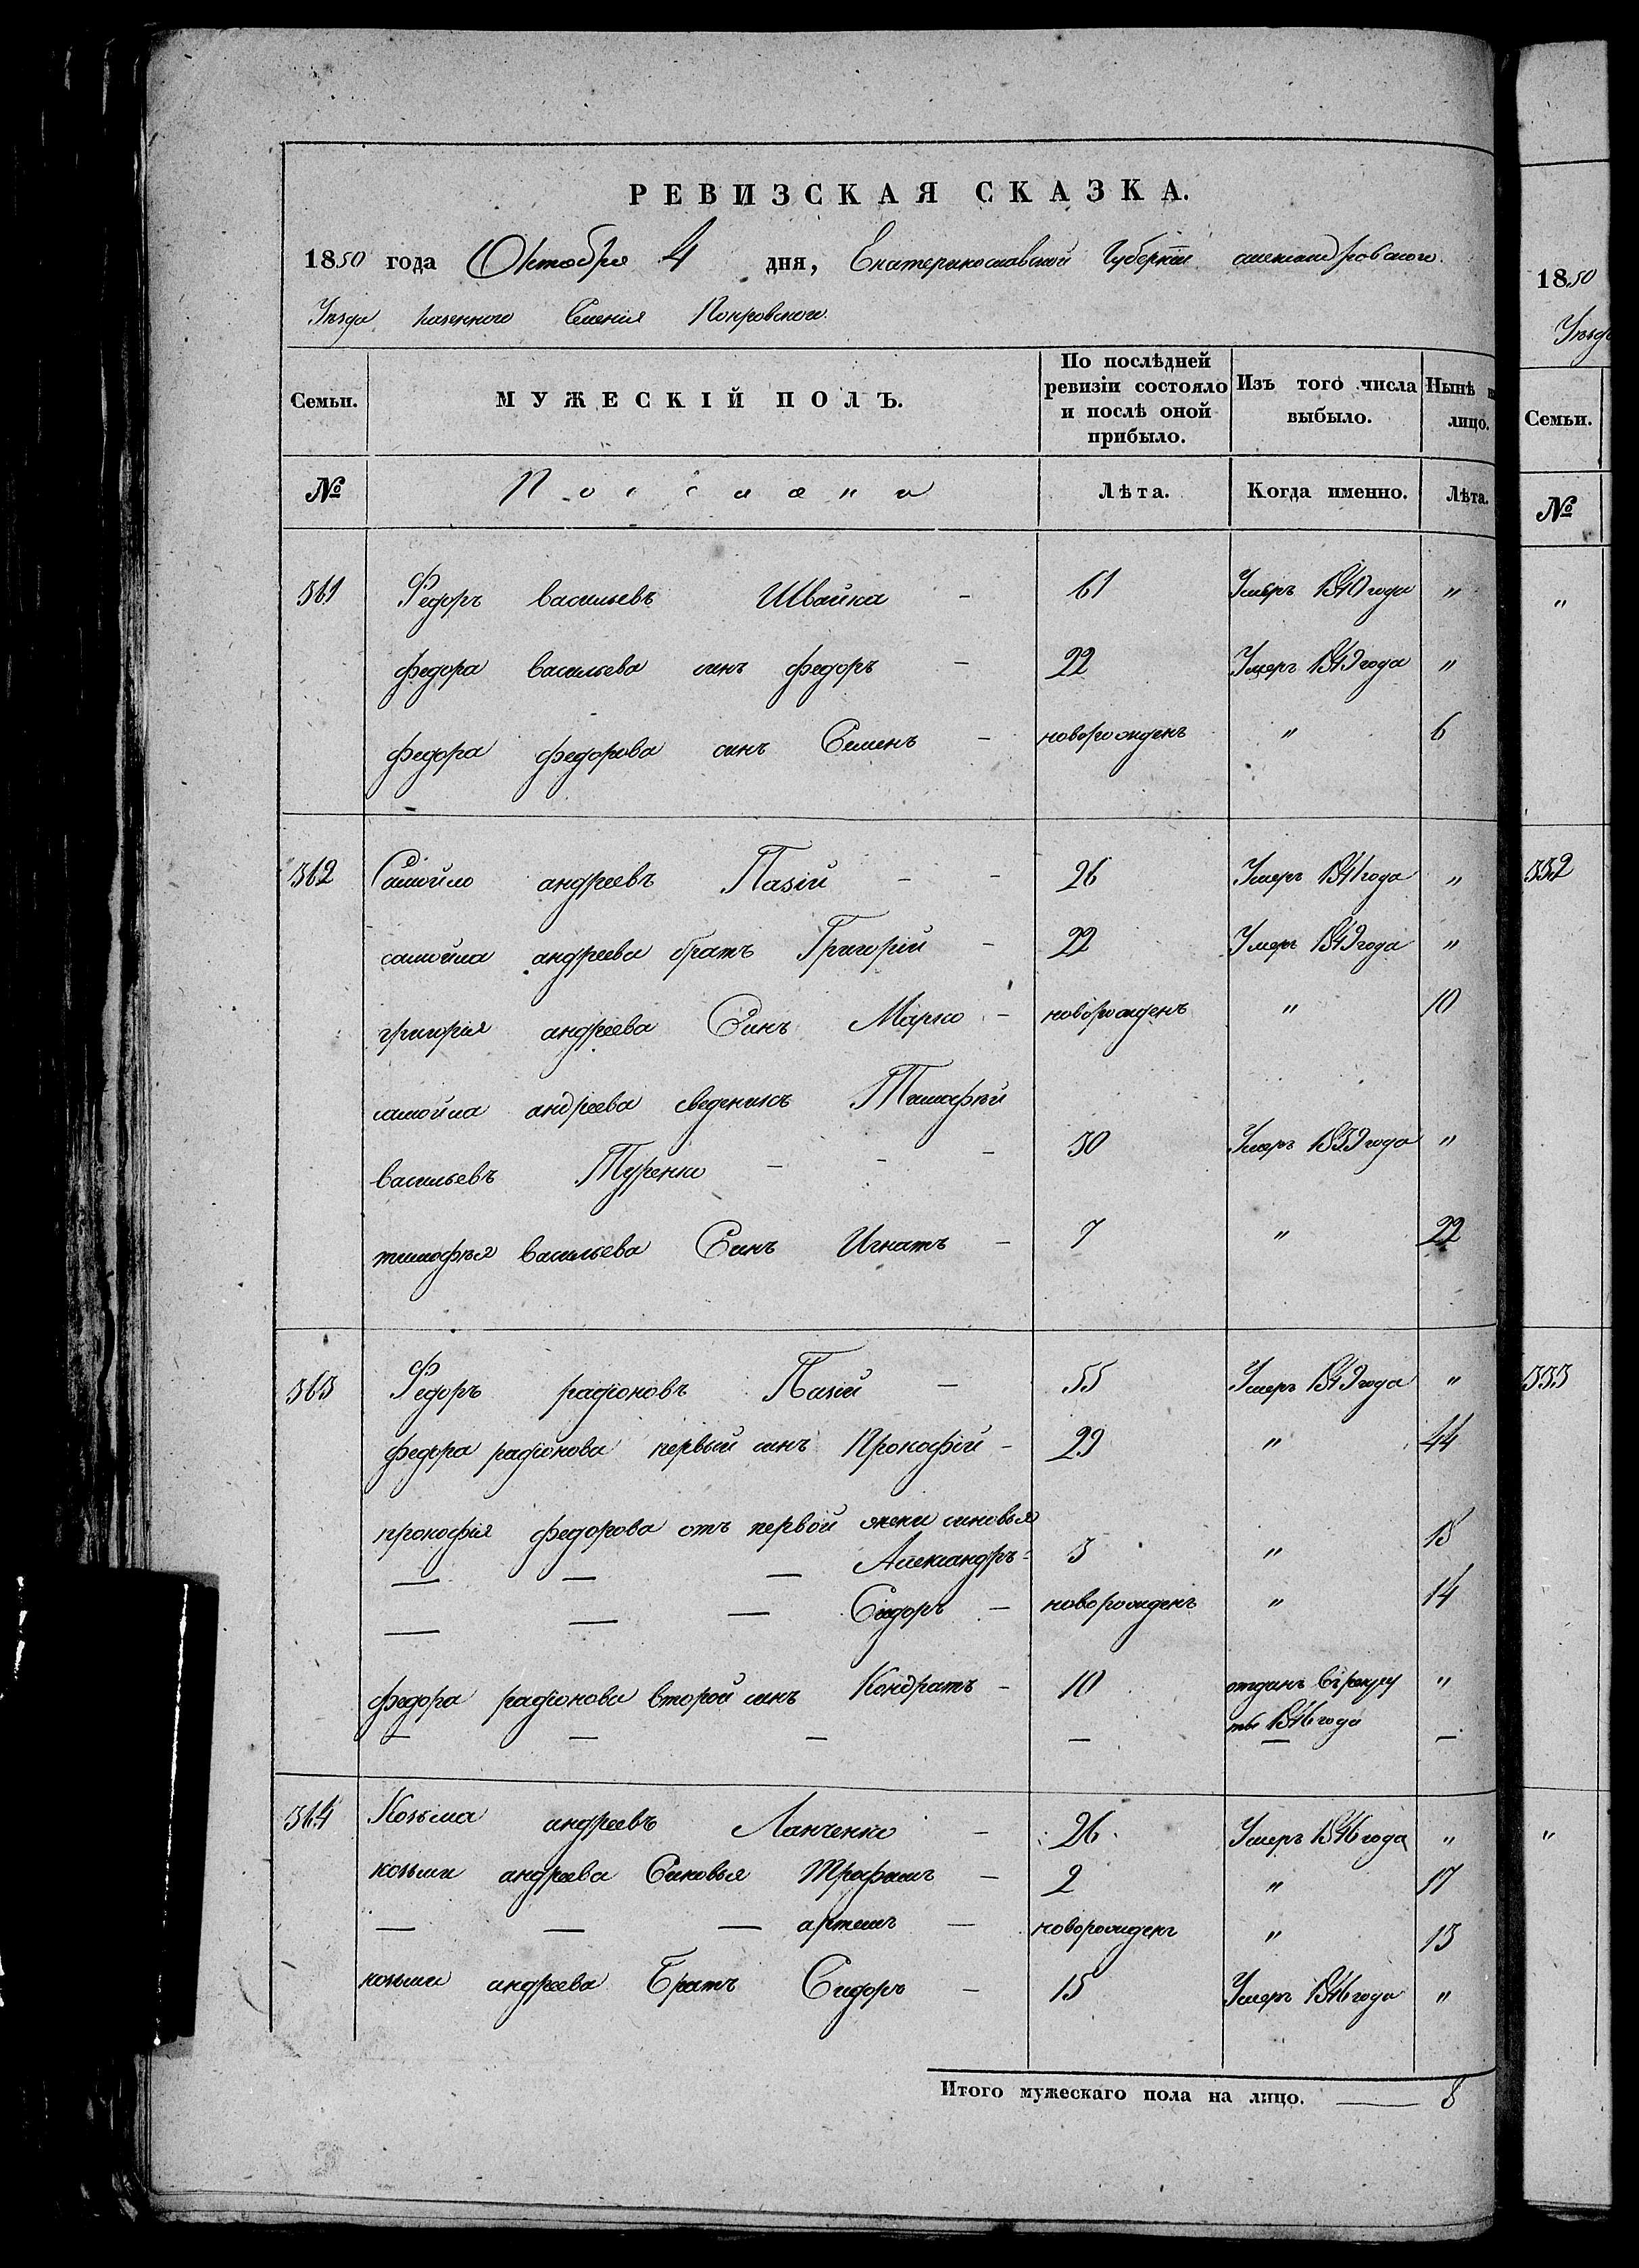 РЕВИЗСКАЯ СКАЗКА.
1850 года Октября 4 дня, Екатеринославской Губерніи александровского
Уезда казенного Селенія Покровского
Семьи. МУЖЕСКІЙ ПОЛЪ. По послѣдней ревизіи состояло и послѣ оной прибыло. Изъ того числа выбыло. Нынѣ на лицо.
№ Поселяни Лѣта. Когда именно. Лѣта.
361 Федоръ васильевъ Швайка - 61 Умеръ 1840 года "
федора васильева синъ федоръ - 22 Умеръ 1849 года "
федора федорова синъ Семенъ - новорожденъ " 6
362 Самойло андреевъ Пазій - - 26 Умеръ 1841 года "
самойла андреева братъ Григорій - 22 Умеръ 1849 года "
григорія андреева Синъ Марко - новорожденъ " 10
самойла андреева сведеникъ Тимофѣй
васильевъ Туренко - - - 30 Умеръ 1839 года "
тимофѣя васильева Синъ Игнатъ - 7 " 22
363 Федоръ радіоновъ Пазій - 55 Умеръ 1849 года "
федора радіонова первый синъ Прокофій - 29 " 44
прокофія федорова отъ первой жени синовья
— — — Александръ - 3 " 18
— — — Сидоръ - новорожденъ " 14
федора радіонова второй синъ Кондратъ - 10 отданъ в рекру "
ты 1846 года
364 Козьма андреевъ Ланченко - 26 Умеръ 1846 года "
козьми андреева Синовья Трофимъ - 2 " 17
— — — артемъ - новорожденъ " 13
козьми андреева Братъ Сидоръ - 15 Умеръ 1846 года "
Итого мужескаго пола на лицо. — 8
1850
Уезда
Семьи.
№
"
332
333
"